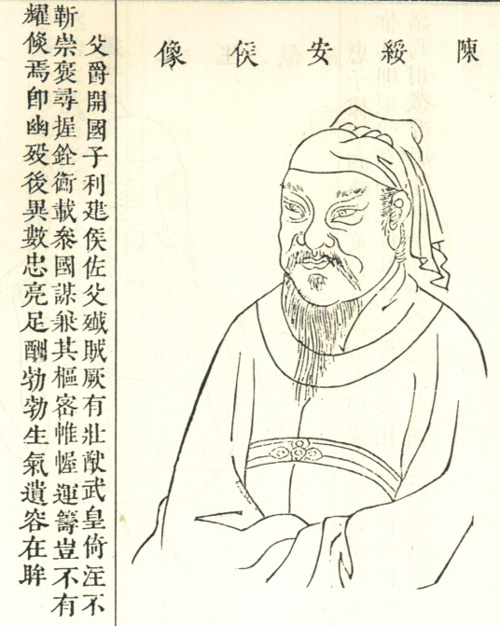 陳綏安侯像
父爵開國子利建侯佐父殲賊厥有壯猷武皇倚注不
靳崇褒尋握銓衡載叅國謀兼其樞密帷幄運籌豈不有
耀倏焉卽幽歿後異數忠亮足酬勃勃生氣遺容在眸